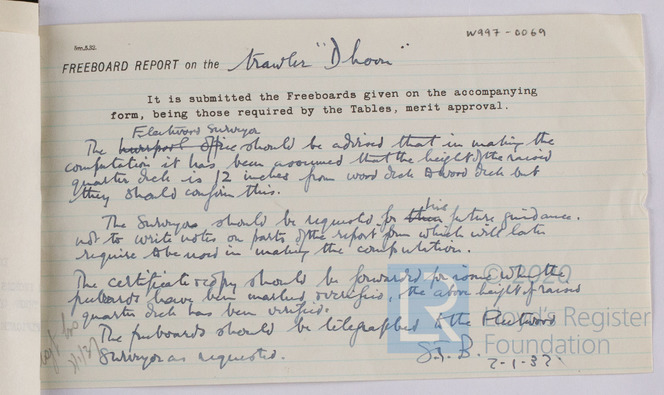 W997-0069
FREEBOARD REPORT on the trawler "Dhoon"
It is submitted the Freeboards given on the accompanying
form, being those required by the Tables, merit approval.
Fleetwood Surveyor
The office should be advised that in making the
computation it has been assumed that the height of the raised
quarter deck is 12 inches from wood deck to wood deck but
they should confirm this.
The Surveyor should be requested for his future guidance.
not to write notes on parts of the report form which will later
require to be used in making the computation.
The certificate & copy should be forwarded for issue when the
freeboards have been marked & verified, & the above height of raised
quarter deck has been verified.
The freeboards should be telegraphed to the Fleetwood
Surveyor as requested.
2-1-32
LR
© 2020
Lloyd's Register
Foundation